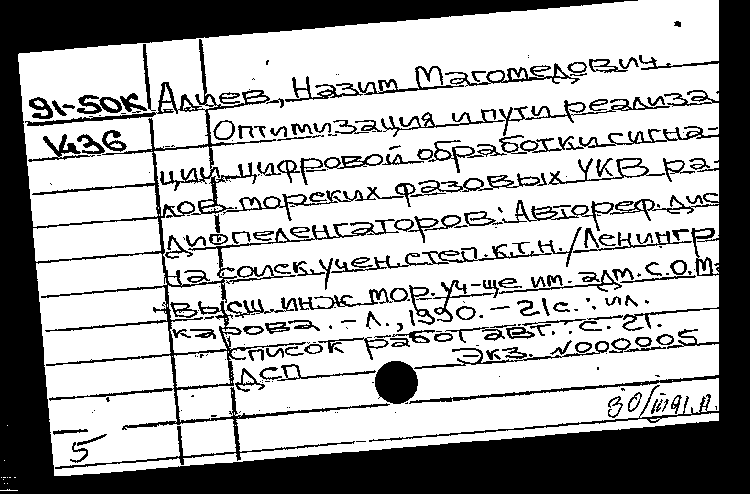 91-50К Алиев, Назим Магомедович.
V436 Оптимизация и пути реализа-
ции цифровой обработки сигна-
лов морских фазовых УКВ ра-
диопеленгаторов: Автореф. дис
на соиск. учен. степ. к.т.н. / Ленингр
высш. инж. мор. уч-ще им. адм. С.О. Ма
карова. – Л., 1990. – 21 с. : ил.
Список работ авт.: с. 21.
ДСП Экз. N000005
80/III 91. Л.
5